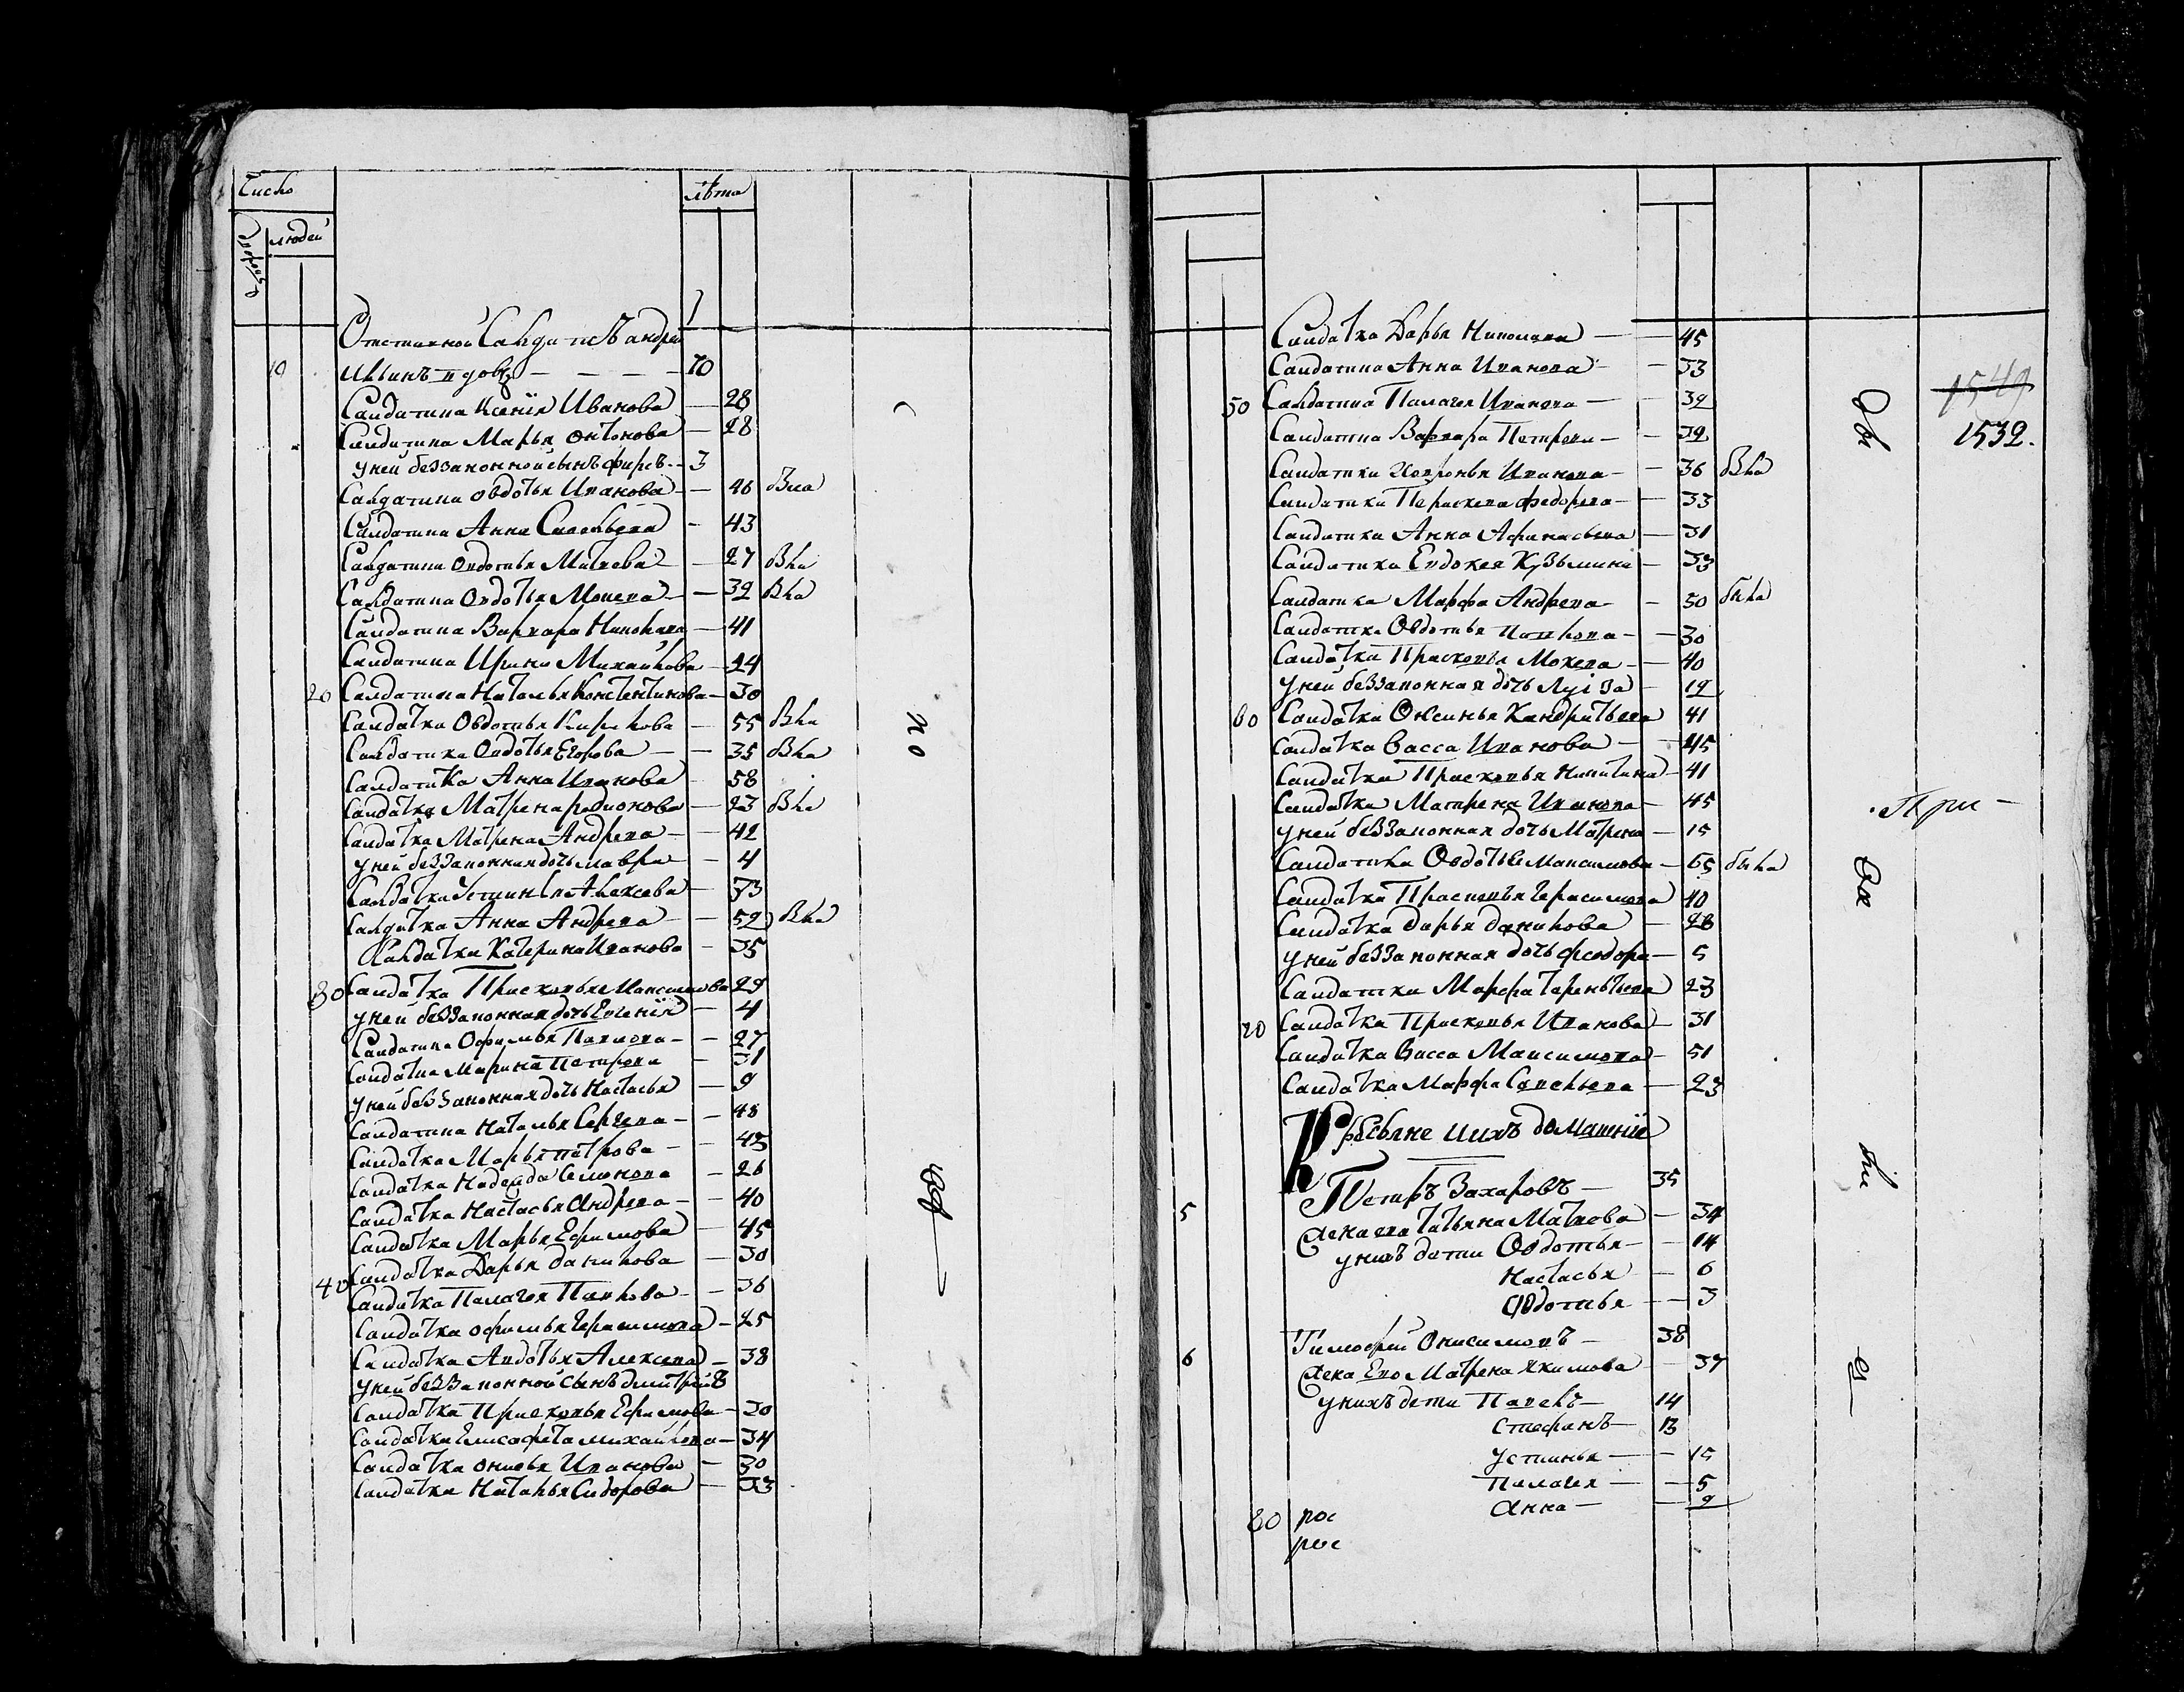 Число
лѣта
дворовъ
людей
Отставной Салдатъ андрей
10 Ильинъ вдовъ — 70
Салдатка Ксенія Иванова — 28
Салдатка Марья онтонова — 28
у ней беззаконной сынъ фирсъ — 3
Салдатка овдотья Иванова — 46 Вла
Салдатка Анна Савельева — 43
Салдатка Овдотья Матвева — 27 Вла
Салдатка Овдотья Мокева — 32 Вла
Салдатка Варвара Николаева — 41
Салдатка Ирина Михайлова — 24
20 Салдатка Наталья Констентинова — 30
Салдатка Овдотья Кирилова — 55 Вла
Салдатка Овдотья Егорова — 35 Вла
Салдатка Анна Иванова 58
Салдатка Матрена родионова — 23 Вла
Салдатка Матрена Андрева — 42
у ней беззаконная дочь мавра — 4
Салдатка Устинья Алексева — 33
Салдатка Анна Андрева — 52 Вла
Салдатка Катерина Иванова — 35
30 Салдатка Прасковья Максимова 29
у ней беззаконная дочь Евгенія — 4
Салдатка Офимья Павлова — 27
Салдатка Марина Петрова — 31
у ней беззаконная дочь Настасья — 9
Салдатка Наталья Сергева — 48
Салдатка Марья петрова — 43
Салдатка Надежда Семионова — 26
Салдатка Настасья Андрева — 40
Салдатка Марья Ефимова — 45
Салдатка Дарья данилова — 30
40 Салдатка Палагея Павлова — 36
Салдатка офимья Герасимова — 25
Салдатка Авдотья Алексева — 38
у ней беззаконной сынъ дмитрей 8
Салдатка Прасковья Ефимова — 30
Салдатка Елисафета михайлова — 34
Салдатка онисья Иванова — 30
Салдатка Наталья Сидорова — 33
по
Салдатка Дарья Николаева — 45
Салдатка Анна Иванова — 33
50 Салдатка Палагея Иванова — 32
Салдатка Варвара Петрова — 32
Салдатка Ховронья Иванова — 36 Вла
Салдатка Парасковья федорова — 33
Салдатка Анна Афанасьева — 31
Салдатка Евдокея Кузьмина — 33
Салдатка Марфа Андрева — 50 была
Салдатка Овдотья павлова — 30
Салдатка Прасковья Мокева — 40
у ней беззаконная дочь Лукіза — 12
60 Салдатка Оксинья Кандратьева 41
Салдатка Васса Иванова — 45
Салдатка Прасковья Никитина — 41
Салдатка Матрена Иванова — 45
у ней беззаконная дочь Матрена — 15
Салдатка Овдотья Максимова — 65 была
Салдатка Прасковья Герасимова 40
Салдатка дарья данилова — 28
у ней беззаконная дочь феодора — 5
Салдатка Марфа Терентьева 23
70 Салдатка Прасковья Иванова — 31
Салдатка Васса Максимова — 51
Салдатка Марфа Савельева — 23
Крестьяне и ихъ домашніе
5 Петръ Захаровъ — 35
Жена ево татьяна Матвева — 34
у нихъ дети Овдотья — 14
Настасья — 6
Овдотья — 3
6 Тимофей Онисимовъ — 38
Жена Ево Матрена Якимова — 37
у нихъ дети Павелъ — 14
Стефанъ — 13
Устинья — 15
Палагея — 5
80 рос Анна — 9
рос
1540
1532.
При —